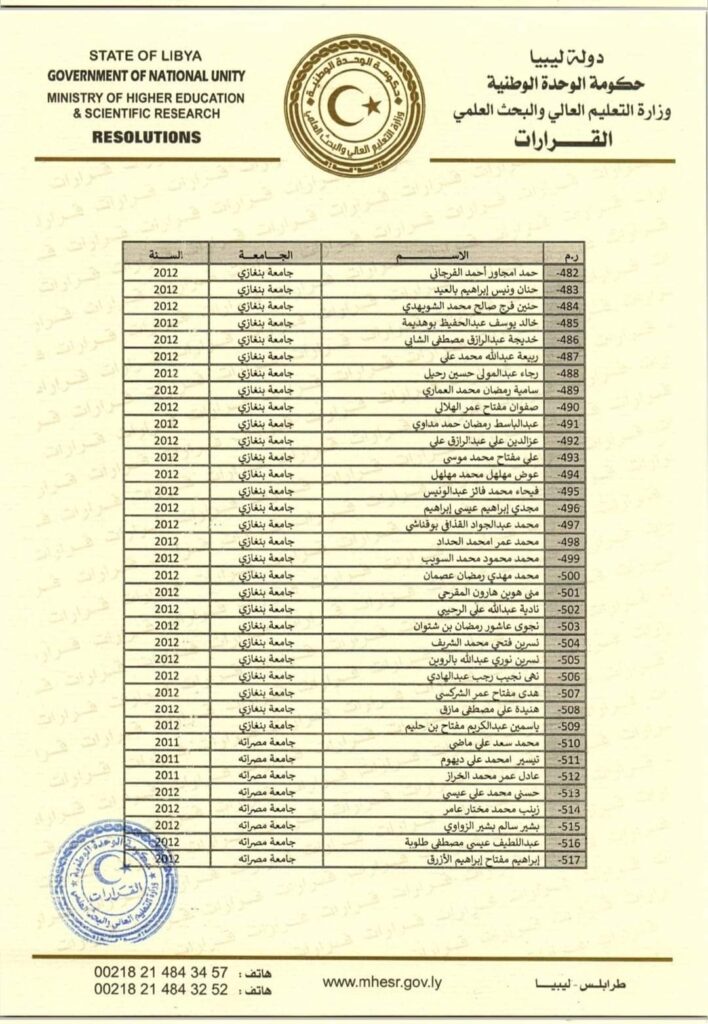 STATE OF LIBYA
GOVERNMENT OF NATIONAL UNITY
MINISTRY OF HIGHER EDUCATION
& SCIENTIFIC RESEARCH
RESOLUTIONS
حكومة الوحدة الوطنية
وزارة التعليم العالي والبحث العلمي
دولة ليبيا
حكومة الوحدة الوطنية
وزارة التعليم العالي والبحث العلمي
القـــــرارات
ر.م الاســـــم الجـامعـــة الســنة
482- حمد امجاور أحمد الفرجاني جامعة بنغازي 2012
483- حنان ونيس إبراهيم بالعيد جامعة بنغازي 2012
484- حنين فرج صالح محمد الشويهدي جامعة بنغازي 2012
485- خالد يوسف عبدالحفيظ بوهديمة جامعة بنغازي 2012
486- خديجة عبدالرازق مصطفى الشابي جامعة بنغازي 2012
487- ربيعة عبدالله محمد علي جامعة بنغازي 2012
488- رجاء عبدالمولى حسين رحيل جامعة بنغازي 2012
489- سامية رمضان محمد العماري جامعة بنغازي 2012
490- صفوان مفتاح عمر الهلالي جامعة بنغازي 2012
491- عبدالباسط رمضان حمد مداوي جامعة بنغازي 2012
492- عزالدين علي عبدالرازق علي جامعة بنغازي 2012
493- علي مفتاح محمد موسى جامعة بنغازي 2012
494- عوض مهلهل محمد مهلهل جامعة بنغازي 2012
495- فيحاء محمد فائز عبدالونيس جامعة بنغازي 2012
496- مجدي إبراهيم عيسى إبراهيم جامعة بنغازي 2012
497- محمد عبدالجواد القذافي بوقناشي جامعة بنغازي 2012
498- محمد عمر امحمد الحداد جامعة بنغازي 2012
499- محمد محمود محمد السويب جامعة بنغازي 2012
500- محمد مهدي رمضان عصمان جامعة بنغازي 2012
501- منى هوين هارون المقرحي جامعة بنغازي 2012
502- نادية عبدالله علي الرحيبي جامعة بنغازي 2012
503- نجوى عاشور رمضان بن شتوان جامعة بنغازي 2012
504- نسرين فتحي محمد الشريف جامعة بنغازي 2012
505- نسرين نوري عبدالله بالروين جامعة بنغازي 2012
506- نهى نجيب رجب عبدالهادي جامعة بنغازي 2012
507- هدى مفتاح عمر الشركسي جامعة بنغازي 2012
508- هنيدة علي مصطفى مازق جامعة بنغازي 2012
509- ياسمين عبدالكريم مفتاح بن حليم جامعة بنغازي 2012
510- محمد سعد علي ماضي جامعة مصراته 2011
511- تيسير امحمد علي ديهوم جامعة مصراته 2011
512- عادل عمر محمد الخراز جامعة مصراته 2011
513- حسني محمد علي عيسى جامعة مصراته 2012
514- زينب محمد مختار عامر جامعة مصراته 2012
515- بشير سالم بشير الزواوي جامعة مصراته 2012
516- عبداللطيف عيسى مصطفى طلوبة جامعة مصراته 2012
517- إبراهيم مفتاح إبراهيم الأزرق جامعة مصراته 2012
حكومة الوحدة الوطنية
القرارات
وزارة التعليم العالي والبحث العلمي
هاتف : 00218 21 484 34 57
هاتف : 00218 21 484 32 52
www.mhesr.gov.ly
طرابلس - ليبيــا